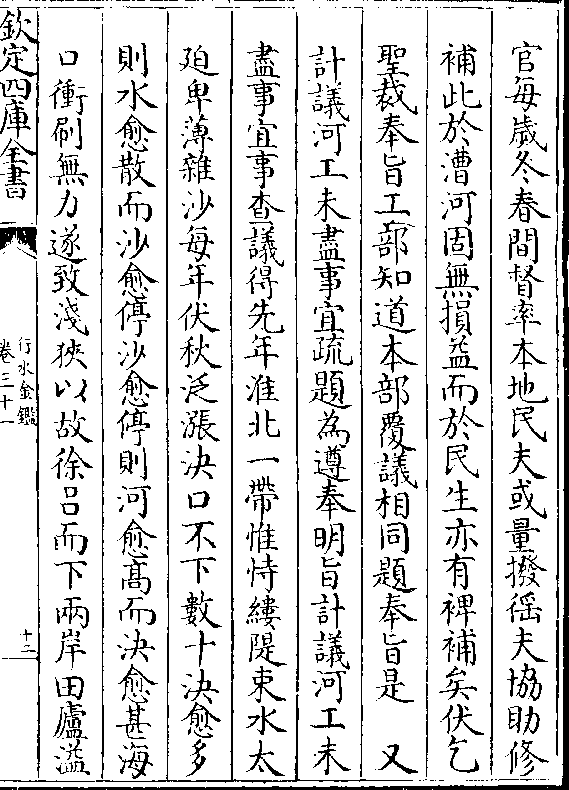 官每歲冬春間督率本地民夫或量撥徭夫協助修
補此於漕河固無損益而於民生亦有裨補矣伏乞
聖裁奉旨工部知道本部覆議相同題奉旨是　又
計議河工未盡事宜疏題為遵奉明旨計議河工未
盡事宜事查議得先年淮北一帶惟恃縷隄束水太
廹卑薄雜沙每年伏秋泛漲決口不下數十決愈多
則水愈散而沙愈停沙愈停則河愈髙而決愈甚海
口衝刷無力遂致淺狹以故徐吕而下兩岸田廬溢
欽定四庫全書
行水金鑑
卷三十一
十二